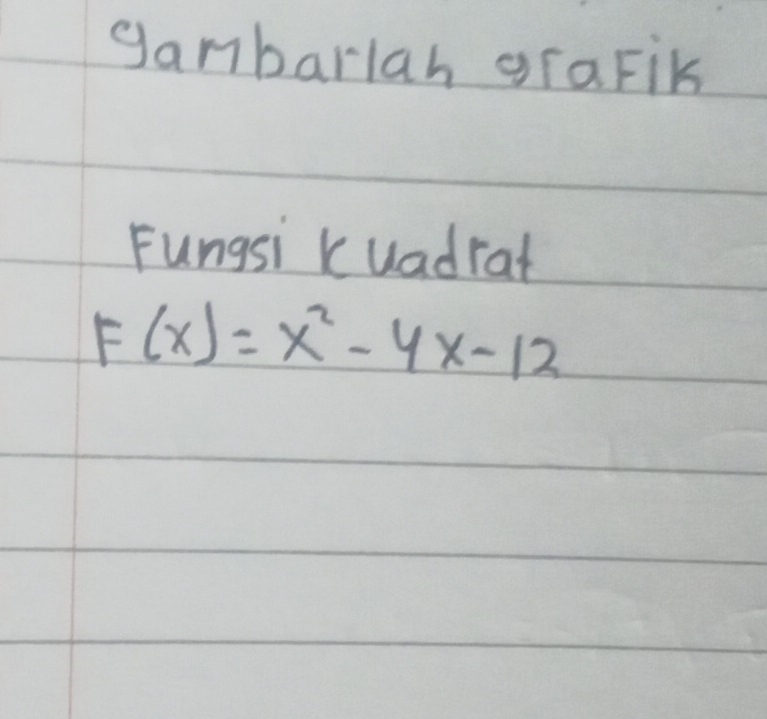 gambarlah grafik
Fungsi kuadrat
F(x) = x² - 4x - 12